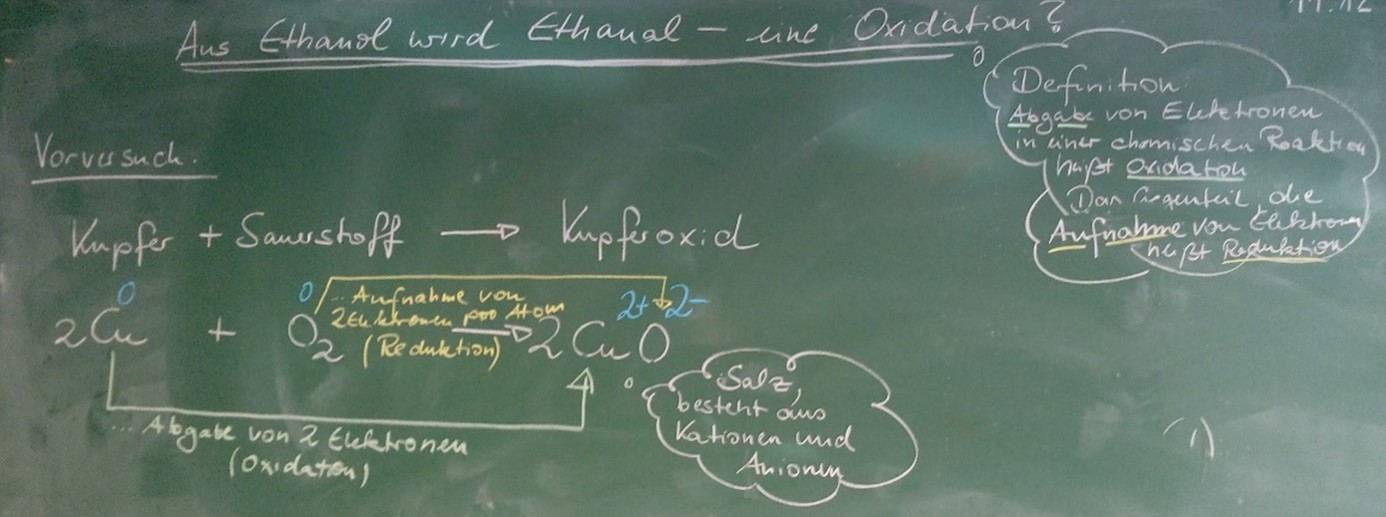 Aus Ethanol wird Ethanal – eine Oxidation?
Definition.
Abgabe von Elektronen
in einer chemischen Reaktion
heißt Oxidation
Das Gegenteil, die
Aufnahme von Elektronen
heißt Reduktion
Vorversuch.
Kupfer + Sauerstoff → Kupferoxid
0 0 2+ 2-
... Aufnahme von
2 Elektronen pro Atom
(Reduktion)
2 Cu + O₂ → 2 CuO
... Abgabe von 2 Elektronen
(Oxidaton)
Salz,
besteht aus
Kationen und
Anionen